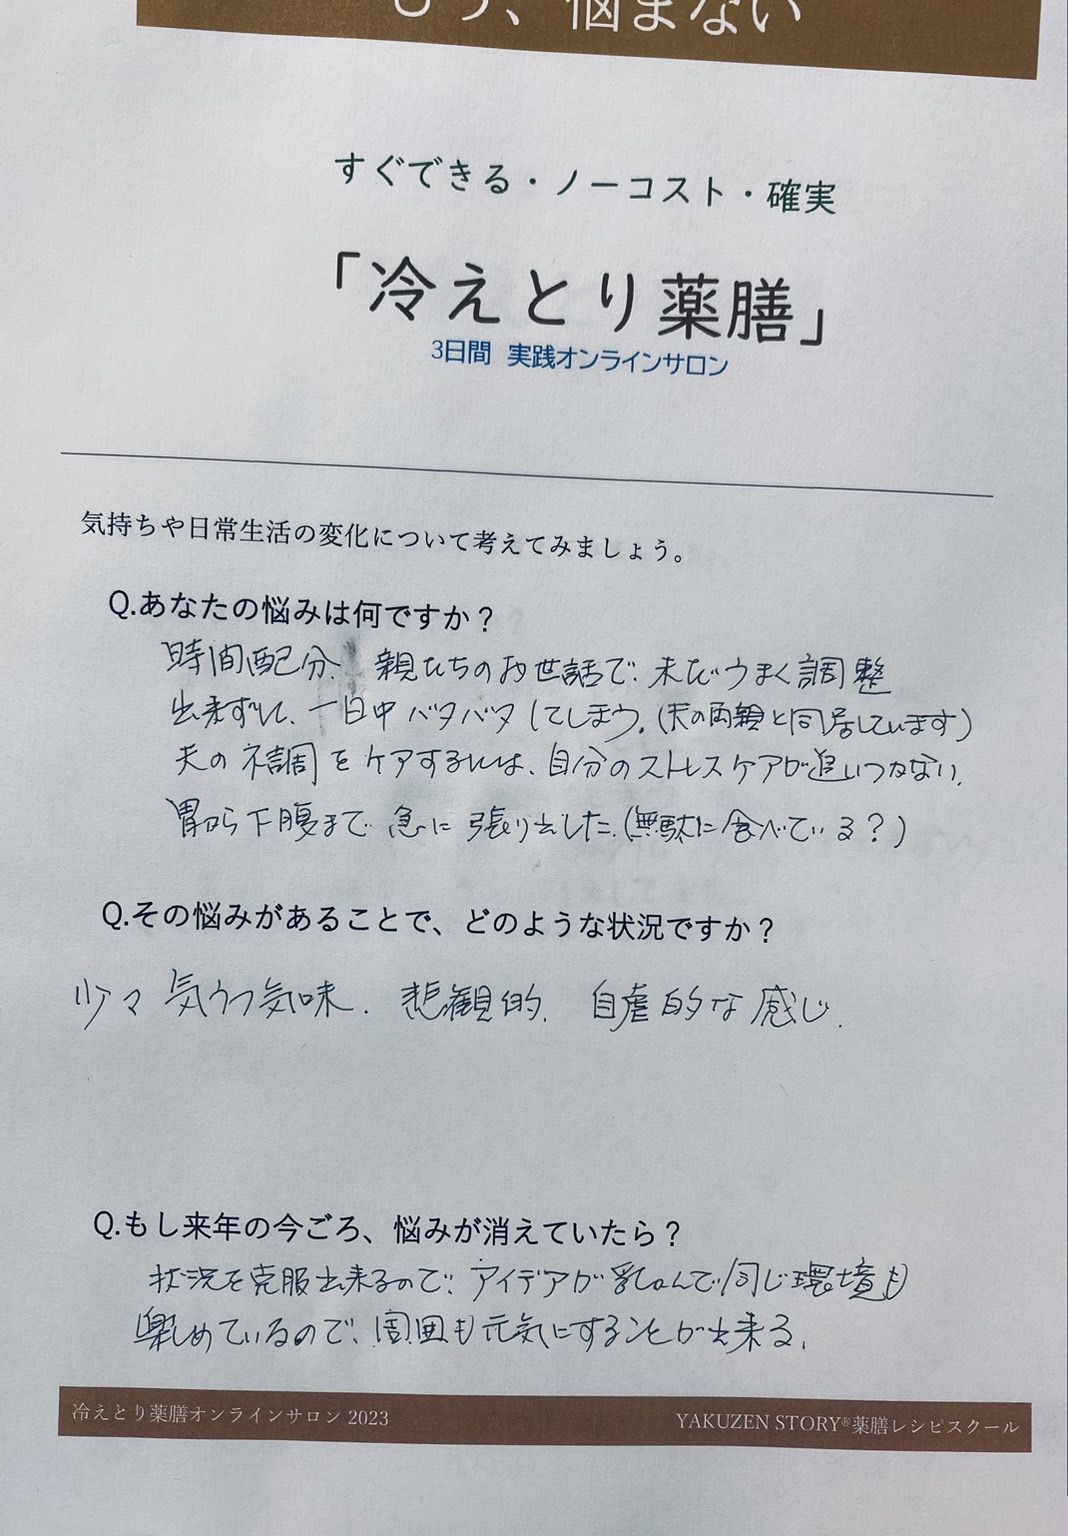 もう、悩まない
すぐできる・ノーコスト・確実
「冷えとり薬膳」
3日間 実践オンラインサロン
気持ちや日常生活の変化について考えてみましょう。
Q.あなたの悩みは何ですか？
時間配分. 親たちのお世話で、未だうまく調整
出来ずにて、一日中バタバタしてしまう。(夫の両親と同居しています)
夫の不調をケアするには、自分のストレスケアが追いつかない。
胃から下腹まで急に張り出した。(無駄に食べている？)
Q.その悩みがあることで、どのような状況ですか？
少々気うつ気味. 悲観的. 自虐的な感じ.
Q.もし来年の今ごろ、悩みが消えていたら？
状況を克服出来るので、アイデアが浮んで同じ環境も
楽しめているので、周囲も元気にすることが出来る.
冷えとり薬膳オンラインサロン 2023
YAKUZEN STORY®薬膳レシピスクール